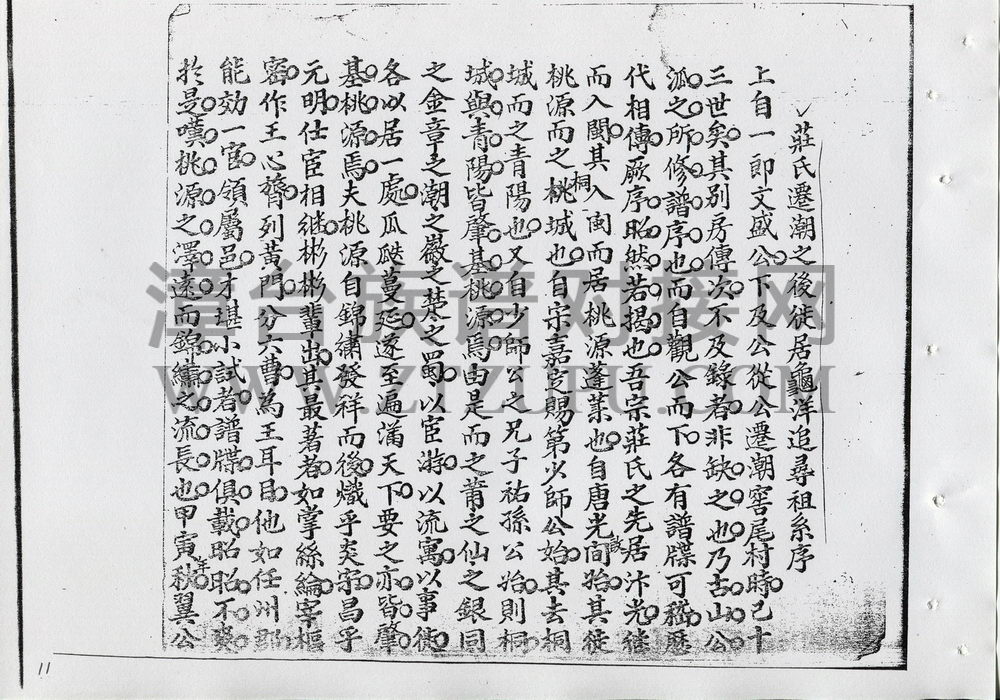 莊氏遷潮之後徙居龜洋追尋祖系序
上自一郎文盛公下及公從公遷潮窖尾村時已十
三世矣其別房傳次不及錄者非缺之也乃古山公
派之所修譜序也而自觀公而下各有譜牒可稽歷
代相傳厥序昭然若揭也吾宗莊氏之先居汴光徙
而入閩其入閩而居桃源蓬萊也自唐光啟間始其徙
桃源而之桐城也自宗嘉定賜第少師公始其去桐
城而之青陽也又自少師公之兄子祐孫公始則桐
城與青陽皆肇基桃源焉由是而之莆之仙之銀同
之金章之潮之徽之楚之蜀以宦游以流寓以事徙
各以居一處瓜瓞蔓延遂至遍滿天下要之亦皆肇
基桃源焉夫桃源自錦繡發祥而後熾乎炎宗昌乎
元明仕宦相継彬彬輩出其最著者如掌絲綸宰樞
密作王心膂列黃門分六曹為王耳目他如任州郡
能効一官領屬邑才堪小試者譜牒俱載昭昭不爽
於是嘆桃源之澤遠而錦繡之流長也甲寅年秋翼公
11
潭台族谱对接网
WWW.ZTZUPU.COM